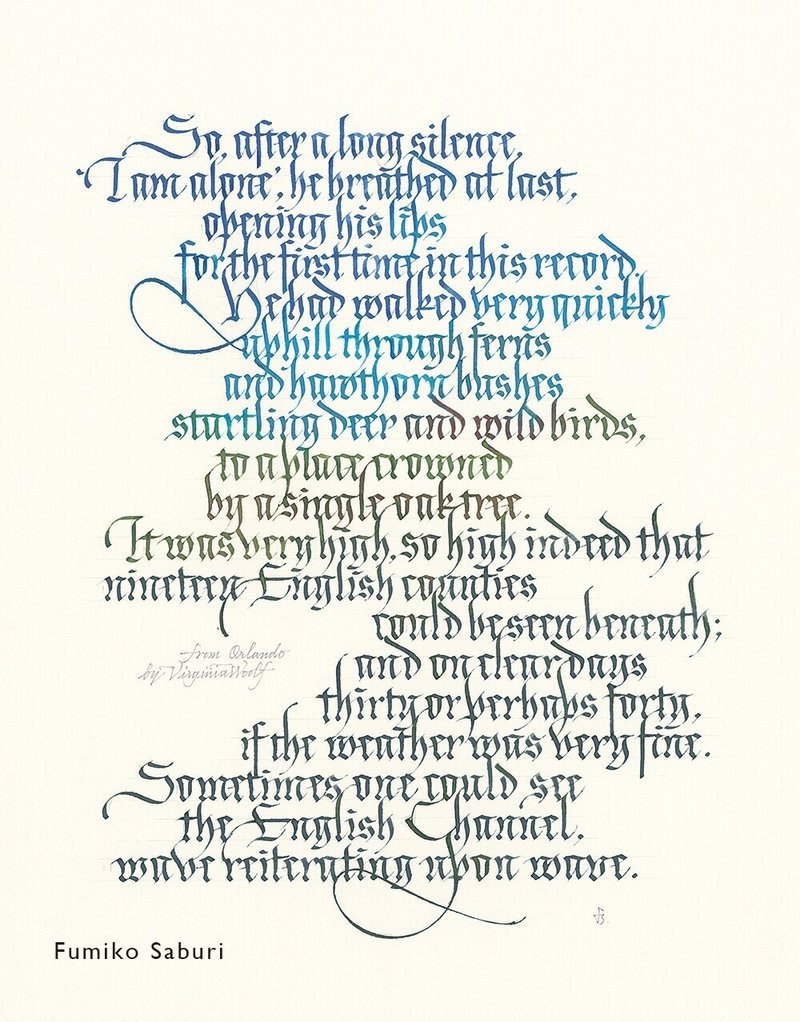 So, after a long silence,
'I am alone', he breathed at last,
opening his lips
for the first time in this record.
He had walked very quickly
uphill through ferns
and hawthorn bushes
startling deer and wild birds,
to a place crowned
by a single oak tree.
It was very high, so high indeed that
nineteen English counties
could be seen beneath;
from Orlando
by Virginia Woolf
and on clear days
thirty or perhaps forty,
if the weather was very fine.
Sometimes one could see
the English Channel,
wave reiterating upon wave.
Fumiko Saburi